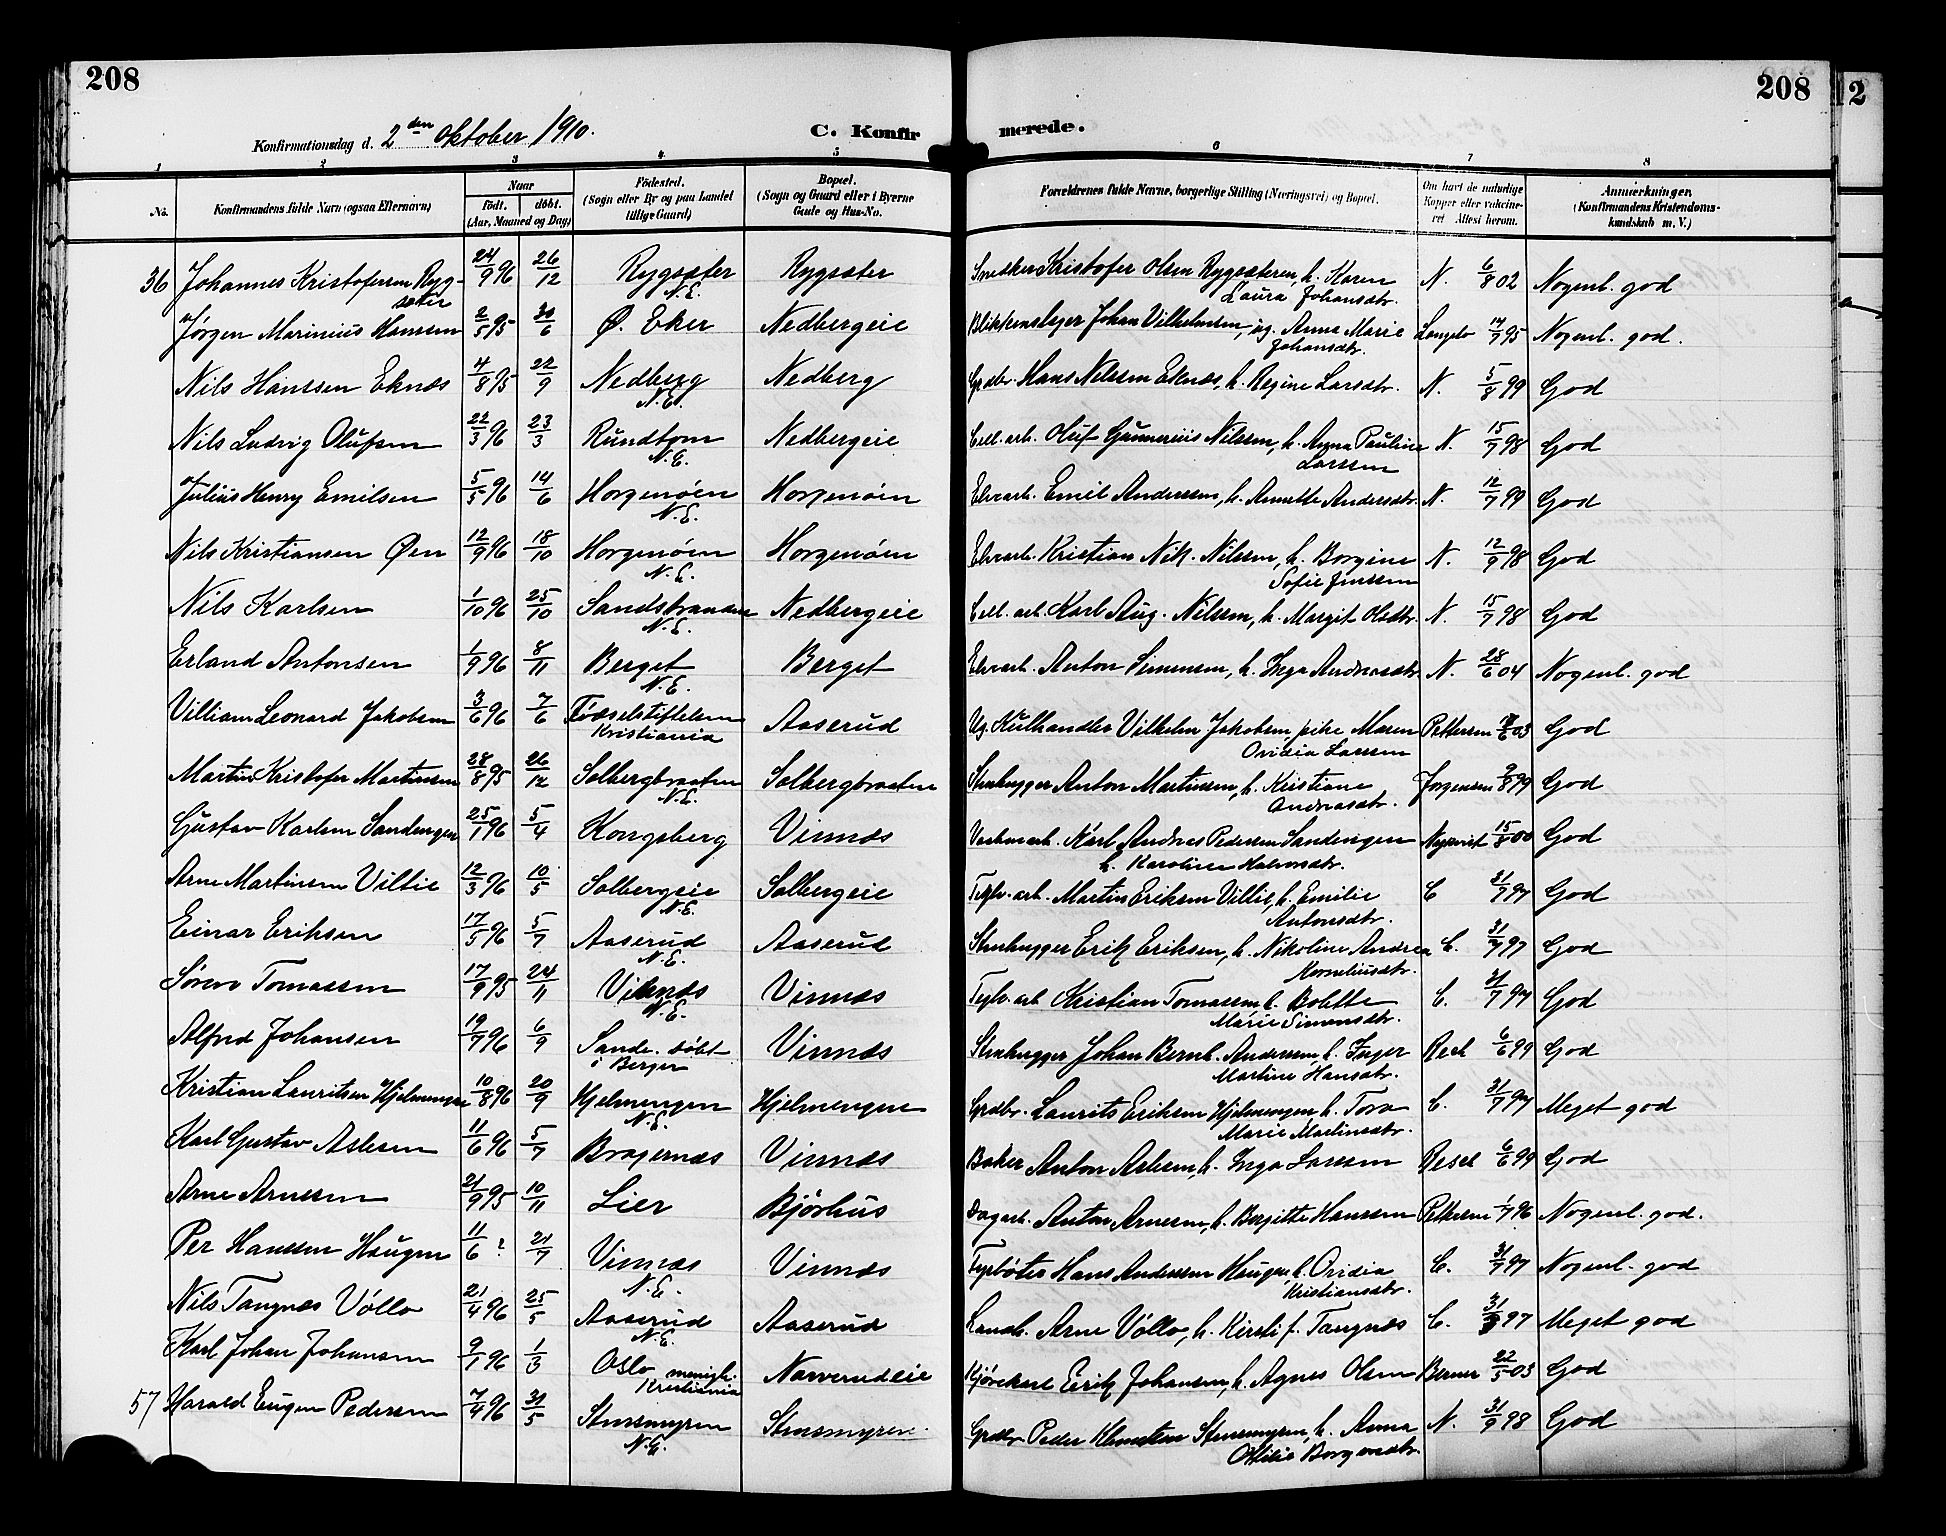 208
208
12
Konfirmationsdag d. 2den oktober 1910.
C. Konfir
merede.
1 2 3 4 5 6 7 8
No. Konfirmandens fulde Navn (ogsaa Efternavn) Naar Födt. döbt. (Aar, Maaned og Dag) Födested. (Sogn eller By og paa Landet tillige Gaard) Bopæl. (Sogn og Gaard eller i Byerne Gade og Hus-No. Forældrenes fulde Navne, borgerlige Stilling (Næringsvei) og Bopæl. Om havt de naturlige Kopper eller vakcineret Attest herom. Anmærkninger. (Konfirmandens Kristendomskundskab m. V.)
36 Johannes Kristofersen Rygsæter 24/9 96 26/12 Rygsæter N.E. Rygsæter Snedker Kristofer Olsen Rygsæteren, h. Karen Laura Johansdtr. N. 6/8 02 Nogenl. god
Jörgen Marinius Hanssen 2/5 95 30/6 Ø. Eker Nedbergeie Blikkenslager Johan Vilhelmsen, ug. Anna Marie Johansdtr. 14/7 95 Nogenl. god.
Nils Hanssen Eknæs 4/8 95 22/9 Nedberg N.E. Nedberg Grdbr. Hans Nilssen Eknæs, h. Regine Larsdtr. N. 5/8 99 God
Nils Ludvig Olufsen 22/3 96 23/3 Rundtom N.E. Nedbergeie Cell. arb. Oluf Gunnerius Nilssen, h. Anna Pauline Larssen N. 15/7 98 God
Julius Henry Emilsen 5/5 96 14/6 Horgenöen N.E. Horgenöen Elvearb. Emil Anderssen, h. Annette Andersdtr. N. 12/7 99 God
Nils Kristiansen Øen 12/9 96 18/10 Horgenöen N.E. Horgenöen Elvearb. Kristian Nik. Nilssen, h. Borgine Sofie Jenssen N. 12/9 98 God
Nils Karlsen 1/10 96 25/10 Sandstranden N.E. Nedbergeie Cell. arb. Karl Aug. Nilssen, h. Margit Olsdtr. N. 15/7 98 God
Erland Antonsen 1/9 96 8/11 Berget N.E. Berget Elvearb. Anton Simensen, h. Inga Andreasdtr. N. 28/6 04 Nogenl. god
Villiam Leonard Jakobsen 3/6 96 7/6 Födselstiftelsen Kristiania Aaserud Ug. Kulhandler Vilhelm Jakobsen, pike Maren Ovidia Larssen Pettersen 6 03 God
Martin Kristofer Martinsen 28/8 95 26/12 Solbergbraaten N.E. Solbergbraaten Stenhugger Anton Martinsen, h. Kristiane Andreasdtr. Jorgensen 9/8 99 God
Gustav Karlsen Sandengen 25/1 96 5/4 Kongsberg Vinnæs Karl Andreas Pedersen Sandengen h. Karoline Halvorsdtr. Nyqvist 15/8 00 God
Arne Martinsen Villie 12/3 96 10/5 Solbergeie N.E. Solbergeie Teglv. arb. Martin Eriksen Villie, h. Emilie Antonsdtr. C 31/7 97 God
Einar Eriksen 17/5 96 5/7 Aaserud N.E. Aaserud Stenhugger Erik Eriksen, h. Nikoline Andrea Korneliusdtr. C. 31/7 97 God
Sören Tomassen 17/9 95 24/11 Vinnæs N.E. Vinnæs Teglv. arb Kristian Tomassen h. Bolette Marie Simensdtr. C. 31/7 97 God
Alfred Johansen 19/7 96 6/9 Sande. döbt i Bergen Vinnæs Stenhugger Johan Bernh. Anderssen, h. Inger Martine Hansdtr. 6/6 99 God
Kristian Lauritsen Hjelmengen 10/8 96 20/9 Hjelmengen N.E. Hjelmengen Grdbr. Laurits Eriksen Hjelmengen h. Tora Marie Martinsdtr. C. 31/7 97 Meget god
Karl Gustav Aslesen 11/6 96 5/7 Bragernæs Vinnæs Baker Anton Aslesen, h. Inga Larssen 6/6 99 God
Arne Arnesen 21/9 95 10/11 Lier Bjórhus Dagarb. Anton Arnesen, h. Bergitte Hanssen Pettersen 1/7 96 Nogenl. god.
Per Hanssen Haugen 11/6 ? 21/7 Vinnæs N.E. Vinnæs Fyrböter Hans Anderssen Haugen, h. Ovidia Kristiansdtr. C. 31/7 97 Nogenl. god
Nils Tangnæs Völlo 21/4 96 25/5 Aaserud N.E. Aaserud Landh. Arne Vóllo, h. Kirsti f. Tangnæs C. 31/7 97 Meget god
Karl Johan Johansen 9/1 96 1/3 Oslo menigh. Kristiania Narverudeie Kjörekarl Erik Johansen, h. Agnes Olsen Berner 22/5 03 God
57 Harald Eugen Pedersen 7/4 96 31/5 Stensmyren N.E. Stensmyren. Grdbr. Peder Stensmyren, h. Anna Ottilie Borgersdtr. N. 31/9 98 God